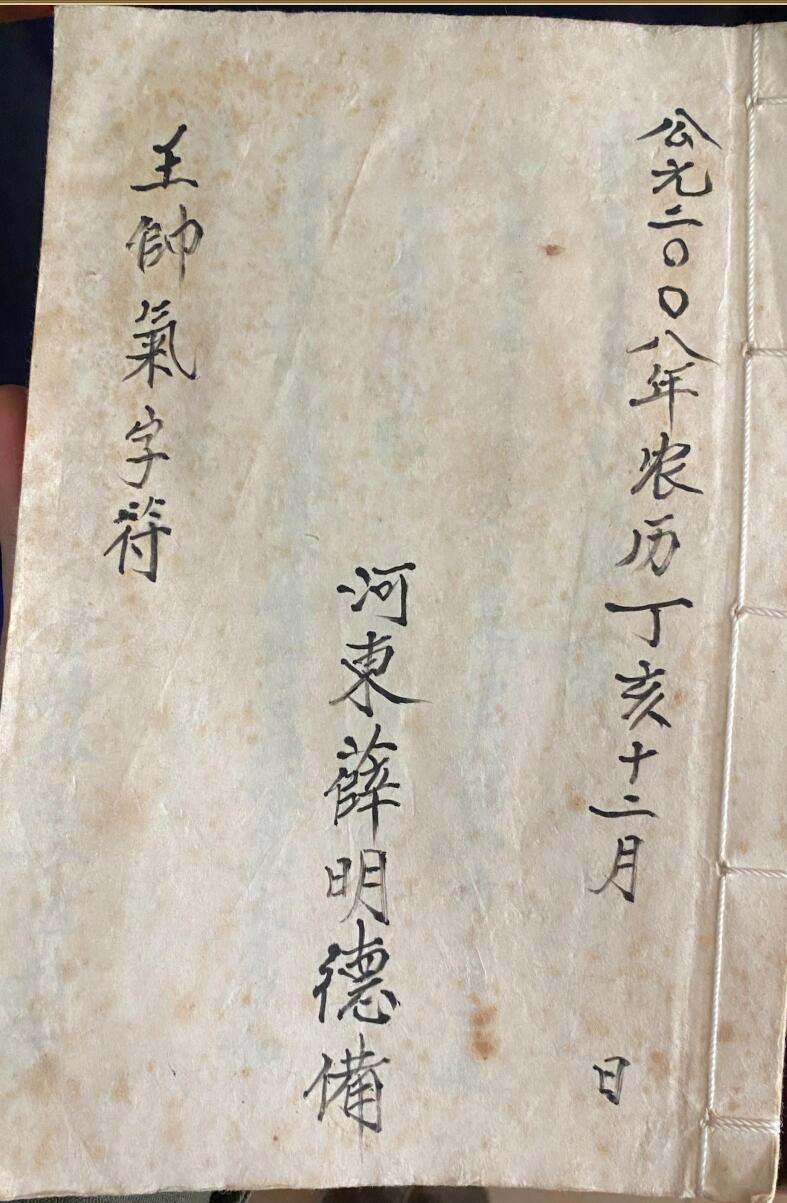 公元二〇〇八年农历丁亥十二月 日
河東薛明德備
王帥氣字符